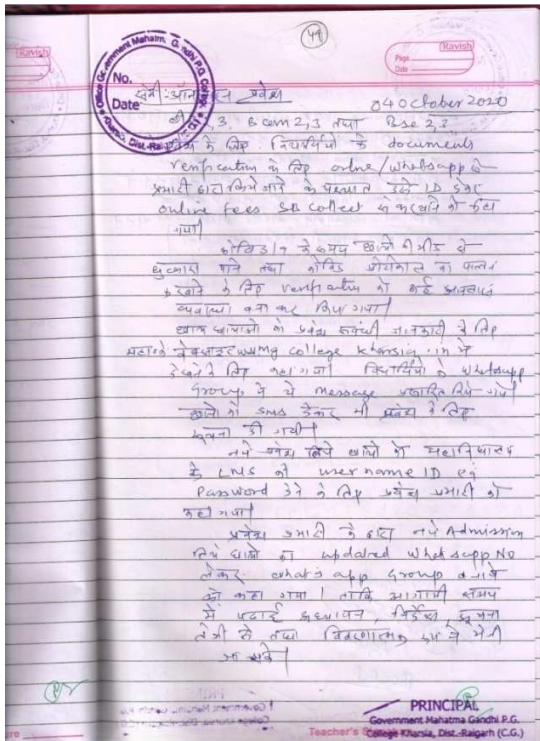 49
Ravish
Ravish
Page
Date
Office Government Mahatma Gandhi P.G. College
Kharsia, Dist.-Raigarh
No.
Date
प्रवेश
04 October 2020
3, B.Com 2,3 तथा BSc 2,3
के लिए विद्यार्थियों के documents
verification के लिए online/Whatsapp से
प्रभारी द्वारा किये जाने के पश्चात उन्हें ID देकर
online fees SB collect से करवाने को कहा
गया।
कोविड 19 के समय छात्रों की भीड़ से
छुटकारा पाने तथा कोविड प्रोटोकाल का पालन
करवाने के लिए verification की कई
व्यवस्था बना कर किया गया।
छात्र छात्राओं के प्रवेश संबंधी जानकारी के लिए
college kharsia .in में
देखने के लिए कहा गया। विद्यार्थियों के Whatsapp
Group में ये message प्रसारित किये गये।
छात्रों को SMS देकर भी प्रवेश के लिए
सूचना दी गयी।
नये प्रवेश लिये छात्रों को महाविद्यालय
के LMS की user name ID एवं
Password देने के लिए प्रवेश प्रभारी को
कहा गया।
प्रवेश प्रभारी के द्वारा नये Admission
लिये छात्रों का updated Whatsapp No
लेकर what's app Group बनाने
को कहा गया। ताकि आगामी समय
में पढाई अध्यापन, निर्देश, सूचना
तेजी से तथा विवरणात्मक रूप से भेजी
जा सके।
PRINCIPAL
Government Mahatma Gandhi P.G.
College Kharsia, Dist.-Raigarh (C.G.)
Teacher's